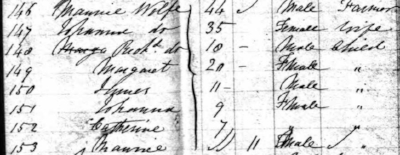 146 Maurice Wolfe 44 Male Farmer
147 Johanna do 35 Female Wife
148 Richd do 18 Male Child
149 Margaret 20 Female "
150 James 11 Male "
151 Johanna 9 Female "
152 Catherine 7 "
153 Maurice 11 Male "